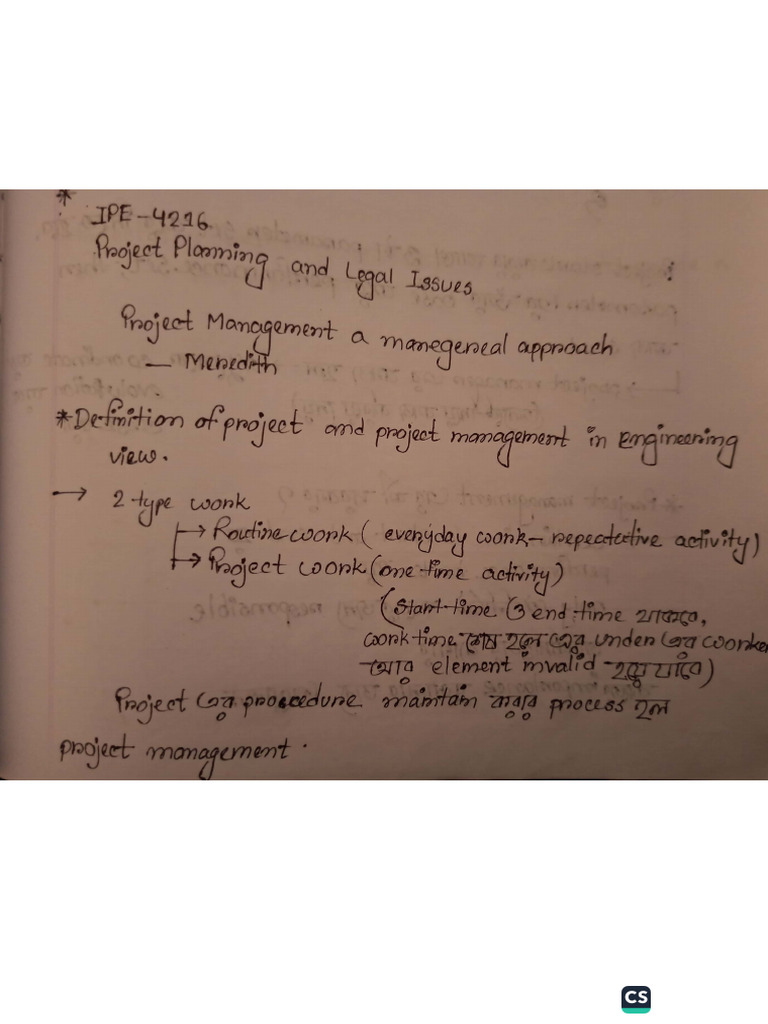 *
IPE-4216
Project Planning and Legal Issues
Project Management a manegereal approach
— Meredith
*Definition of project and project management in Engineering
view.
→ 2 type work
→ Routine work ( everyday work- repeatative activity)
→ Project work (one time activity)
(Start time ও end time থাকবে,
work time শেষ হলে এর under এর worker
আর element invalid হয়ে যাবে)
Project এর procedure maintain করার process হল
project management.
CS